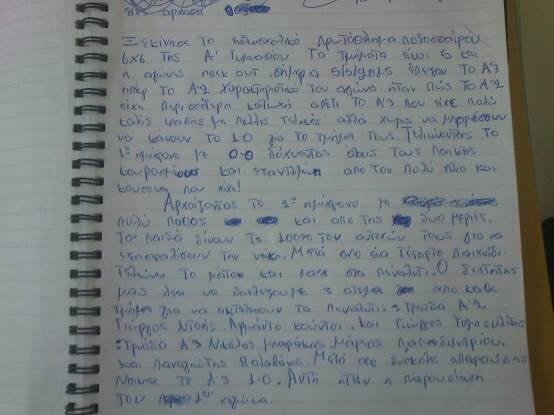 Ξεκίνησε το ενδοσχολικό πρωτάθλημα ποδοσφαίρου
6χ6 της Α' Γυμνασίου Τα τμήματα είναι 5 και
η αγώνες νοκ αουτ. Σήμερα 5/3/2015 έπαιξαν το Α'3
το Α'2 Χαρακτηριστικό του αγώνα ήταν πώς το Α'2
είχε περισσότερη κατοχή αλλά το Α'3 που είχε πολύ
καλές φάσεις με πολλές τελικές αλλά χωρίς να μπορέσουν
να κάνουν το 1-0 για το τμήμα τους. Τελειώνοντας το
1ο ημίχρονο με 0-0 όλους τους παίκτες
κουρασμένους και από τον πολύ ήλιο και
που είχε!
Αρχίζοντας το 2ο ημίχρονο με
πολύ πάθος και από της δυο μεριές.
Τα παιδιά δίνουν το 100% των αντοχών τους για να
εξασφαλίσουν την νίκη. Μετά από ένα τέταρτο παιχνίδι
τελειώνει το μάτσο και πάνε στα πέναλτι. Ο διαιτητής
μας λέει να διαλέξουμε 3 άτομα από κάθε
τμήμα για να εκτελέσουν τα πέναλτι. Τριάδα Α'2
Γιώργος Ντόης, Αρμάντο και Γιώργος
: Τριάδα Α'3 Νικόλας Μάριος Παπαδημητρίου
και Παναγιώτης Βαλαβάνης. Μετά από δύσκολες
Νίκησε το Α'3 1-0. Αυτή ήταν η παρουσίαση
του 1ου αγώνα.